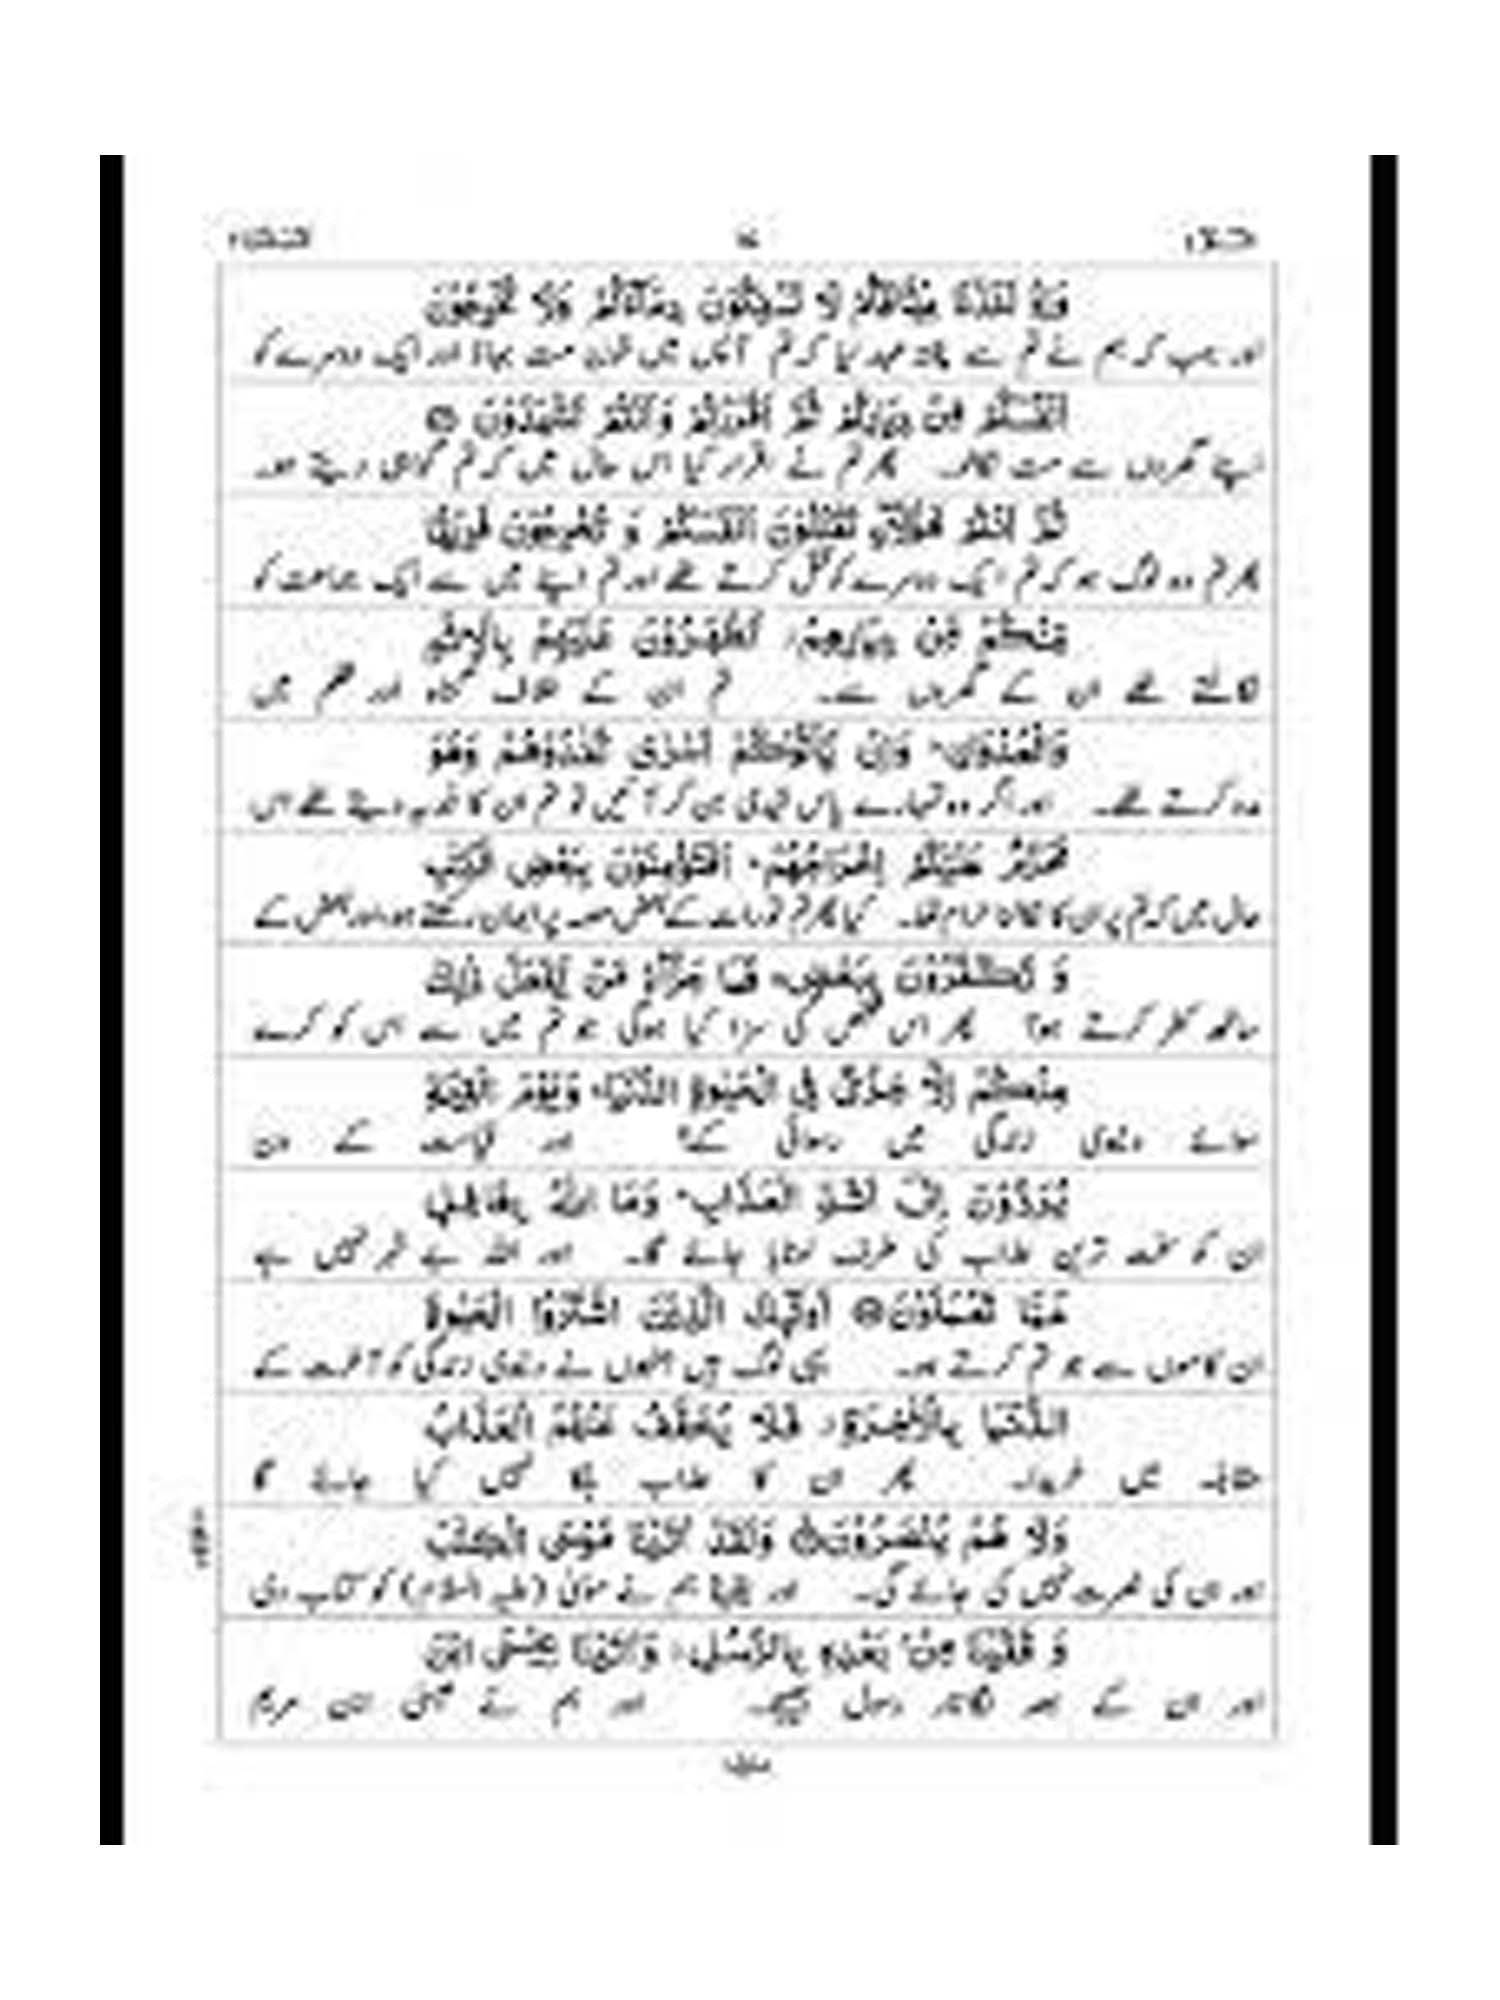 البقرة ٢
وَاِذْ اَخَذْنَا مِيْثَاقَكُمْ لَا تَسْفِكُوْنَ دِمَآءَكُمْ وَلَا تُخْرِجُوْنَ
اور جب کہ ہم نے تم سے پختہ عہد لیا کہ تم آپس میں خون مت بہاؤ اور ایک دوسرے کو
اَنْفُسَكُمْ مِّنْ دِيَارِكُمْ ثُمَّ اَقْرَرْتُمْ وَاَنْتُمْ تَشْهَدُوْنَ
اپنے گھروں سے مت نکالو۔ پھر تم نے اقرار کیا اس حال میں کہ تم گواہی دیتے ہو۔
ثُمَّ اَنْتُمْ هٰٓؤُلَآءِ تَقْتُلُوْنَ اَنْفُسَكُمْ وَ تُخْرِجُوْنَ فَرِيْقًا
پھر تم وہ لوگ ہو کہ تم ایک دوسرے کو قتل کرتے تھے اور تم اپنے میں سے ایک جماعت کو
مِّنْكُمْ مِّنْ دِيَارِهِمْ تَظٰهَرُوْنَ عَلَيْهِمْ بِالْاِثْمِ
نکالتے تھے ان کے گھروں سے۔ تم ان کے خلاف گناہ اور ظلم میں
وَالْعُدْوَانِ وَاِنْ يَّاْتُوْكُمْ اُسٰرٰى تُفٰدُوْهُمْ وَهُوَ
مدد کرتے تھے۔ اور اگر وہ تمہارے پاس قیدی بن کر آئیں تو تم ان کا فدیہ دیتے تھے اس
مُحَرَّمٌ عَلَيْكُمْ اِخْرَاجُهُمْ اَفَتُؤْمِنُوْنَ بِبَعْضِ الْكِتٰبِ
حال میں کہ تم پر ان کا نکالنا حرام تھا۔ کیا پھر تم تورات کے بعض حصہ پر ایمان رکھتے ہو اور بعض کے
وَ تَكْفُرُوْنَ بِبَعْضٍ فَمَا جَزَآءُ مَنْ يَّفْعَلُ ذٰلِكَ
ساتھ کفر کرتے ہو؟ پھر اس شخص کی سزا کیا ہوگی جو تم میں سے اس کو کرے
مِنْكُمْ اِلَّا خِزْىٌ فِى الْحَيٰوةِ الدُّنْيَا وَيَوْمَ الْقِيٰمَةِ
سوائے دنیوی زندگی میں رسوائی کے؟ اور قیامت کے دن
يُرَدُّوْنَ اِلٰٓى اَشَدِّ الْعَذَابِ وَمَا اللّٰهُ بِغَافِلٍ
ان کو سخت ترین عذاب کی طرف لوٹایا جائے گا۔ اور اللہ بے خبر نہیں ہے
عَمَّا تَعْمَلُوْنَ اُولٰٓئِكَ الَّذِيْنَ اشْتَرَوُا الْحَيٰوةَ
ان کاموں سے جو تم کرتے ہو۔ یہی لوگ ہیں جنہوں نے دنیوی زندگی کو آخرت کے
الدُّنْيَا بِالْاٰخِرَةِ فَلَا يُخَفَّفُ عَنْهُمُ الْعَذَابُ
مقابلہ میں خریدا۔ پھر ان کا عذاب ہلکا نہیں کیا جائے گا
وَلَا هُمْ يُنْصَرُوْنَ وَلَقَدْ اٰتَيْنَا مُوْسَى الْكِتٰبَ
اور ان کی نصرت نہیں کی جائے گی۔ اور یقیناً ہم نے موسیٰ (علیہ السلام) کو کتاب دی
وَ قَفَّيْنَا مِنْ بَعْدِهٖ بِالرُّسُلِ وَاٰتَيْنَا عِيْسَى ابْنَ
اور ان کے بعد لگاتار رسول بھیجے۔ اور ہم نے عیسیٰ ابن مریم